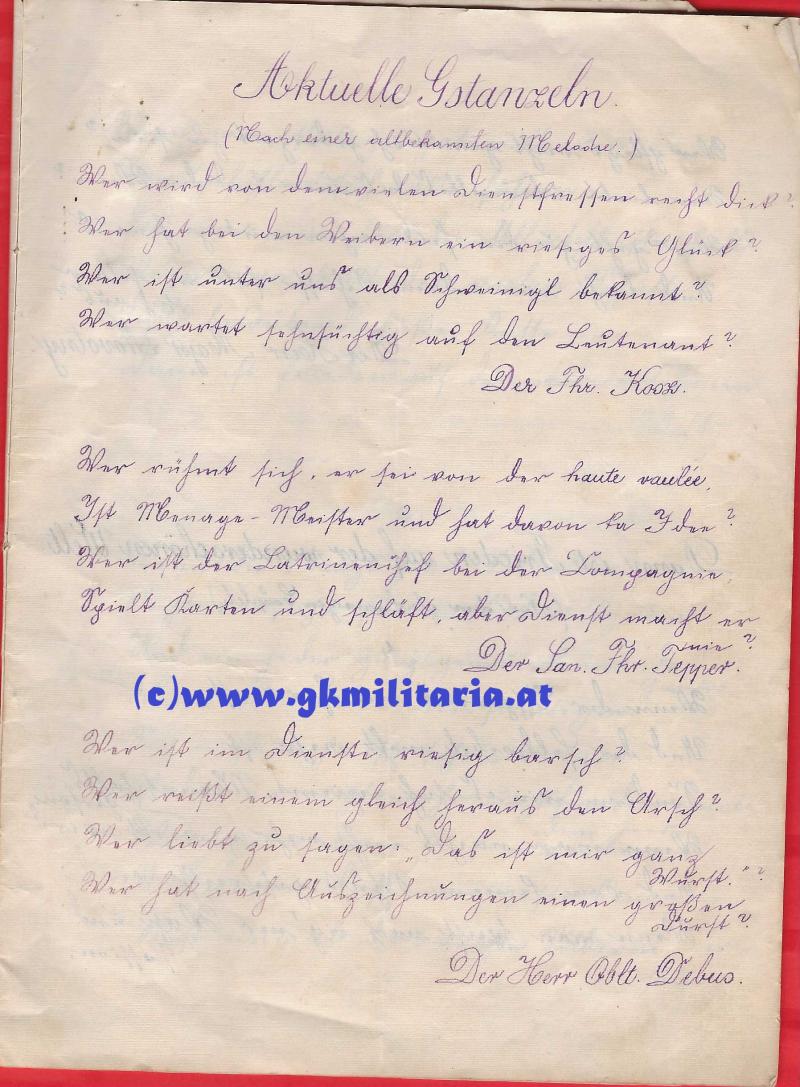 Aktuelle Gstanzeln.
(Nach einer altbekannten Melodie.)
Wer wird von dem vielen Dienstfressen recht dick?
Wer hat bei den Weibern ein riesiges Glück?
Wer ist unter uns als Schweinigl bekannt?
Wer wartet sehnsüchtig auf den Leutenant?
Der Fhr. Koox.
Wer rühmt sich, er sei von der haute vaulée,
Ist Menage-Meister und hat davon ka Idee?
Wer ist der Latrinenchef bei der Compagnie,
Spielt Karten und schläft, aber Dienst macht er
nie?
Der San. Fhr. Tepper.
(c)www.gkmilitaria.at
Wer ist im Dienste riesig barsch?
Wer reißt einem gleich heraus den Arsch?
Wer liebt zu sagen: „Das ist mir ganz
Wurst."?
Wer hat nach Auszeichnungen einen großen
Durst?
Der Herr Oblt. Debus.